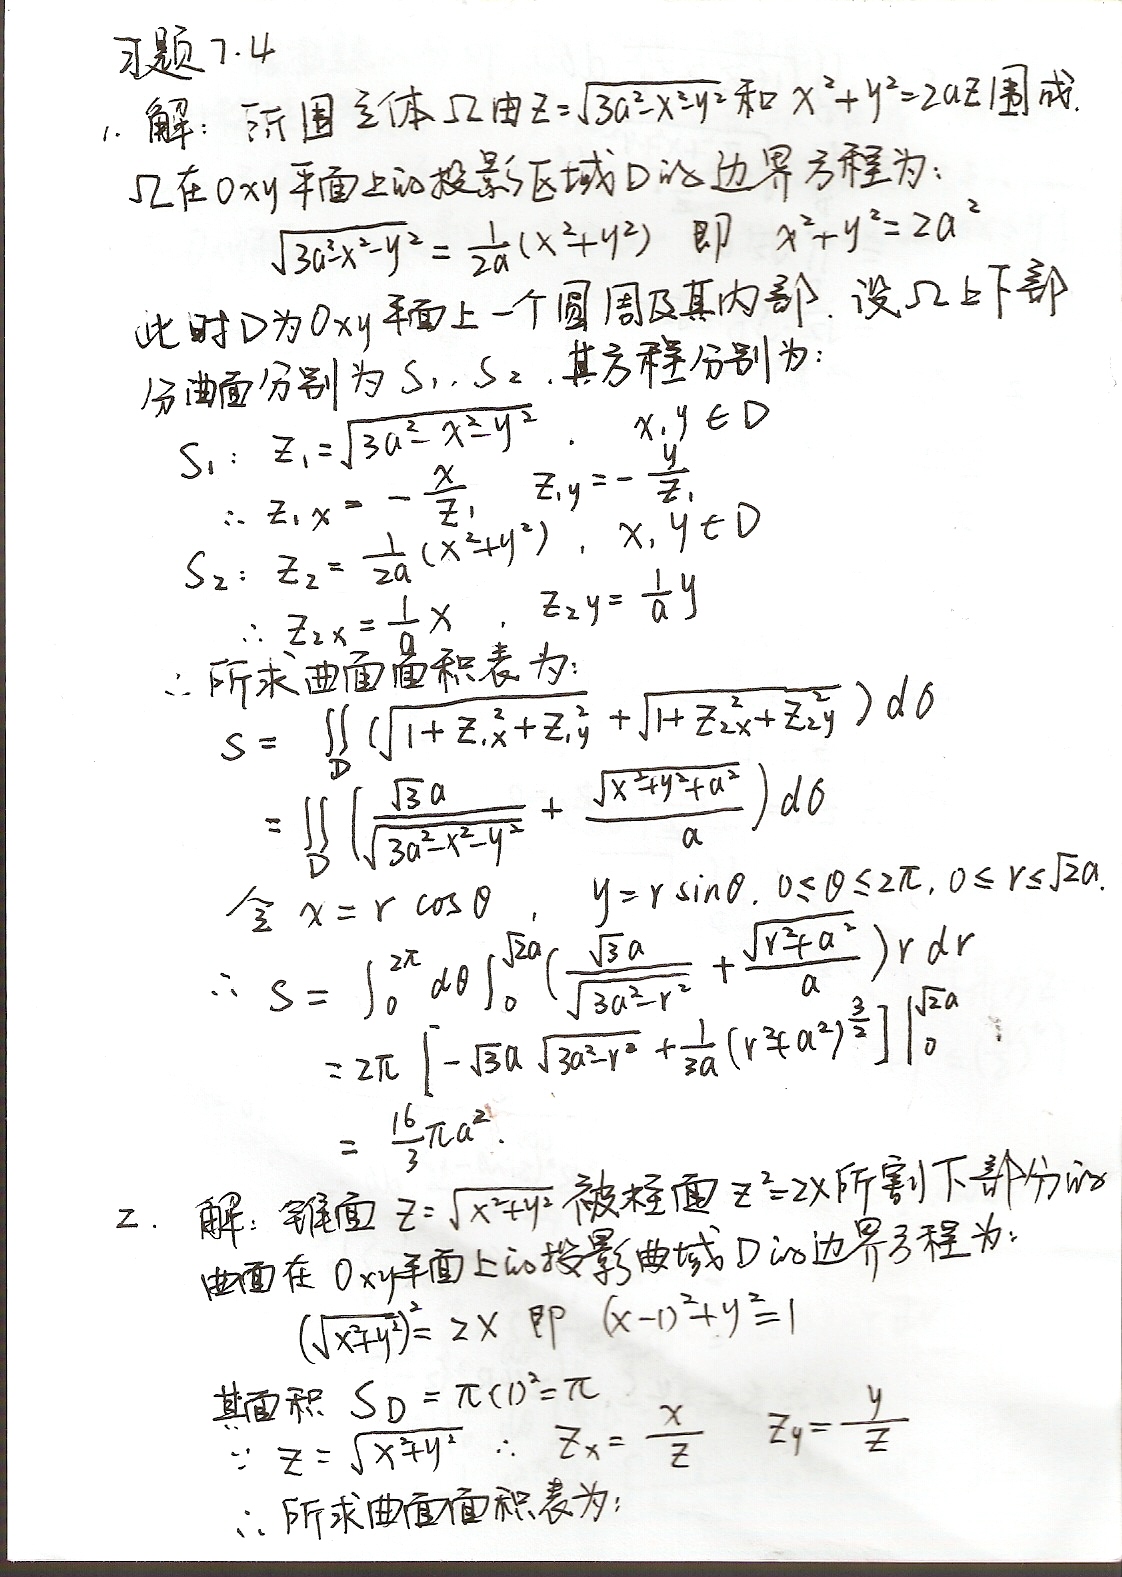 习题7.4
1. 解: 所围立体Ω由z=√(3a²-x²-y²)和x²+y²=2az围成.
Ω在Oxy平面上的投影区域D的边界方程为:
√(3a²-x²-y²) = 1/2a (x²+y²) 即 x²+y²=2a²
此时D为Oxy平面上一个圆周及其内部. 设Ω上下部
分曲面分别为S₁. S₂. 其方程分别为:
S₁: z₁=√(3a²-x²-y²) . x,y∈D
∴ z₁x = -x/z₁ z₁y = -y/z₁
S₂: z₂ = 1/2a (x²+y²) , x,y∈D
∴ z₂x = 1/a x , z₂y = 1/a y
∴ 所求曲面面积表为:
S = ∬_D (√(1+z₁x²+z₁y²) + √(1+z₂x²+z₂y²)) dσ
= ∬_D (√3a/√(3a²-x²-y²) + √(x²+y²+a²)/a) dσ
令 x=r cosθ , y=r sinθ. 0≤θ≤2π, 0≤r≤√2a.
∴ S = ∫₀^2π dθ ∫₀^√2a (√3a/√(3a²-r²) + √(r²+a²)/a) r dr
= 2π [-√3a √(3a²-r²) + 1/3a (r²+a²)^3/2] |₀^√2a
= 16/3 πa².
2. 解: 锥面 z=√(x²+y²) 被柱面 z²=2x所割下部分的
曲面在Oxy平面上的投影曲域D的边界方程为:
(√(x²+y²))² = 2x 即 (x-1)²+y²=1
其面积 S_D = π(1)²=π
∵ z=√(x²+y²) ∴ z_x = x/z z_y = y/z
∴ 所求曲面面积表为: